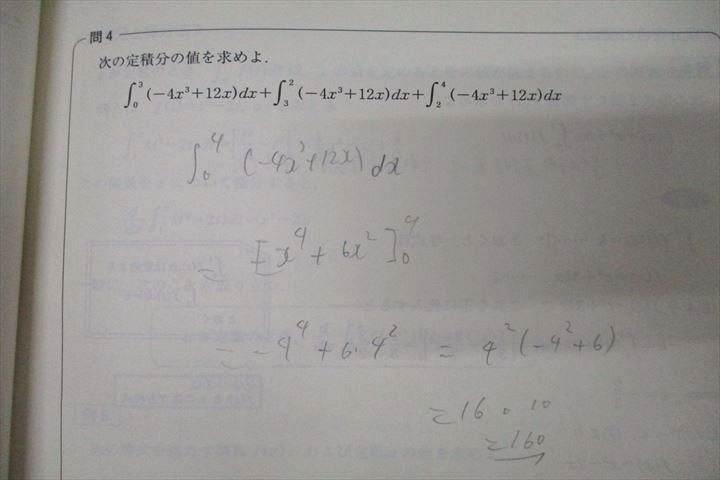 問4
次の定積分の値を求めよ.
∫₀³(−4x³+12x)dx+∫₃²(−4x³+12x)dx+∫₂⁴(−4x³+12x)dx
∫₀⁴(−4x³+12x)dx
= [−x⁴+6x²]₀⁴
= −4⁴+6・4² = 4²(−4²+6)
=16・10
=160